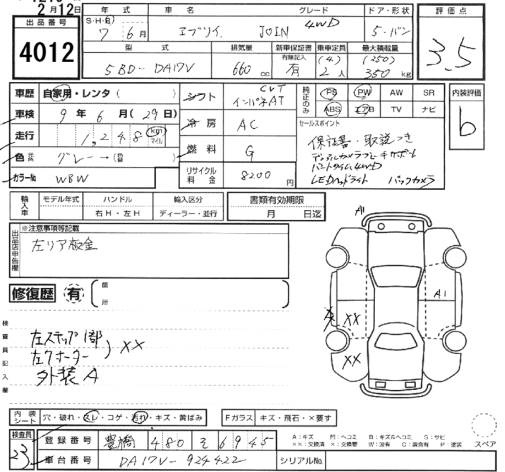 2月12日
出品番号
4012
年式 車名 グレード ドア・形状
S・H・R 7年 6月 エブリイ JOIN 4WD 5・バン
型式 排気量 新車保証書 乗車定員 最大積載量
有無記入 (4) (250)
5BD-DA17V 660cc 有 2人 350kg
評価点
3.5
車歴 自家用・レンタ
車検 9年 6月 (29日)
走行 1,248 km マイル
色 グレー→
カラーNo. WBW
シフト CVT インパネAT
冷房 AC
燃料 G
リサイクル料金 8200円
純正のみ PS PW AW SR
ABS エアB TV ナビ
セールスポイント
保証書・取説つき
デュアルカメラブレーキサポート
パートタイム4WD
LEDヘッドライト バックカメラ
内装評価
b
輸入車 モデル年式 ハンドル 輸入区分
年 右H・左H ディーラー・並行
書類有効期限
月 日迄
出品店申告欄
※注意事項等記載
左リア板金
修復歴 有 箇所
検査員記入欄
左ステップ1部
左クォーター
XX
外装A
A1
A1
XX
XX
内装シート 穴・破れ・スレ・コゲ・汚れ・キズ・黄ばみ
Fガラス キズ・飛石・×要す
検査員
23
登録番号 豊橋 480 え 6945
車台番号 DA17V-924422
シリアルNo.
A:キズ U:ヘコミ B:キズ&ヘコミ S:サビ
XX:交換済 X:要交換 W:波有 C:腐食有 P:塗装
スペア